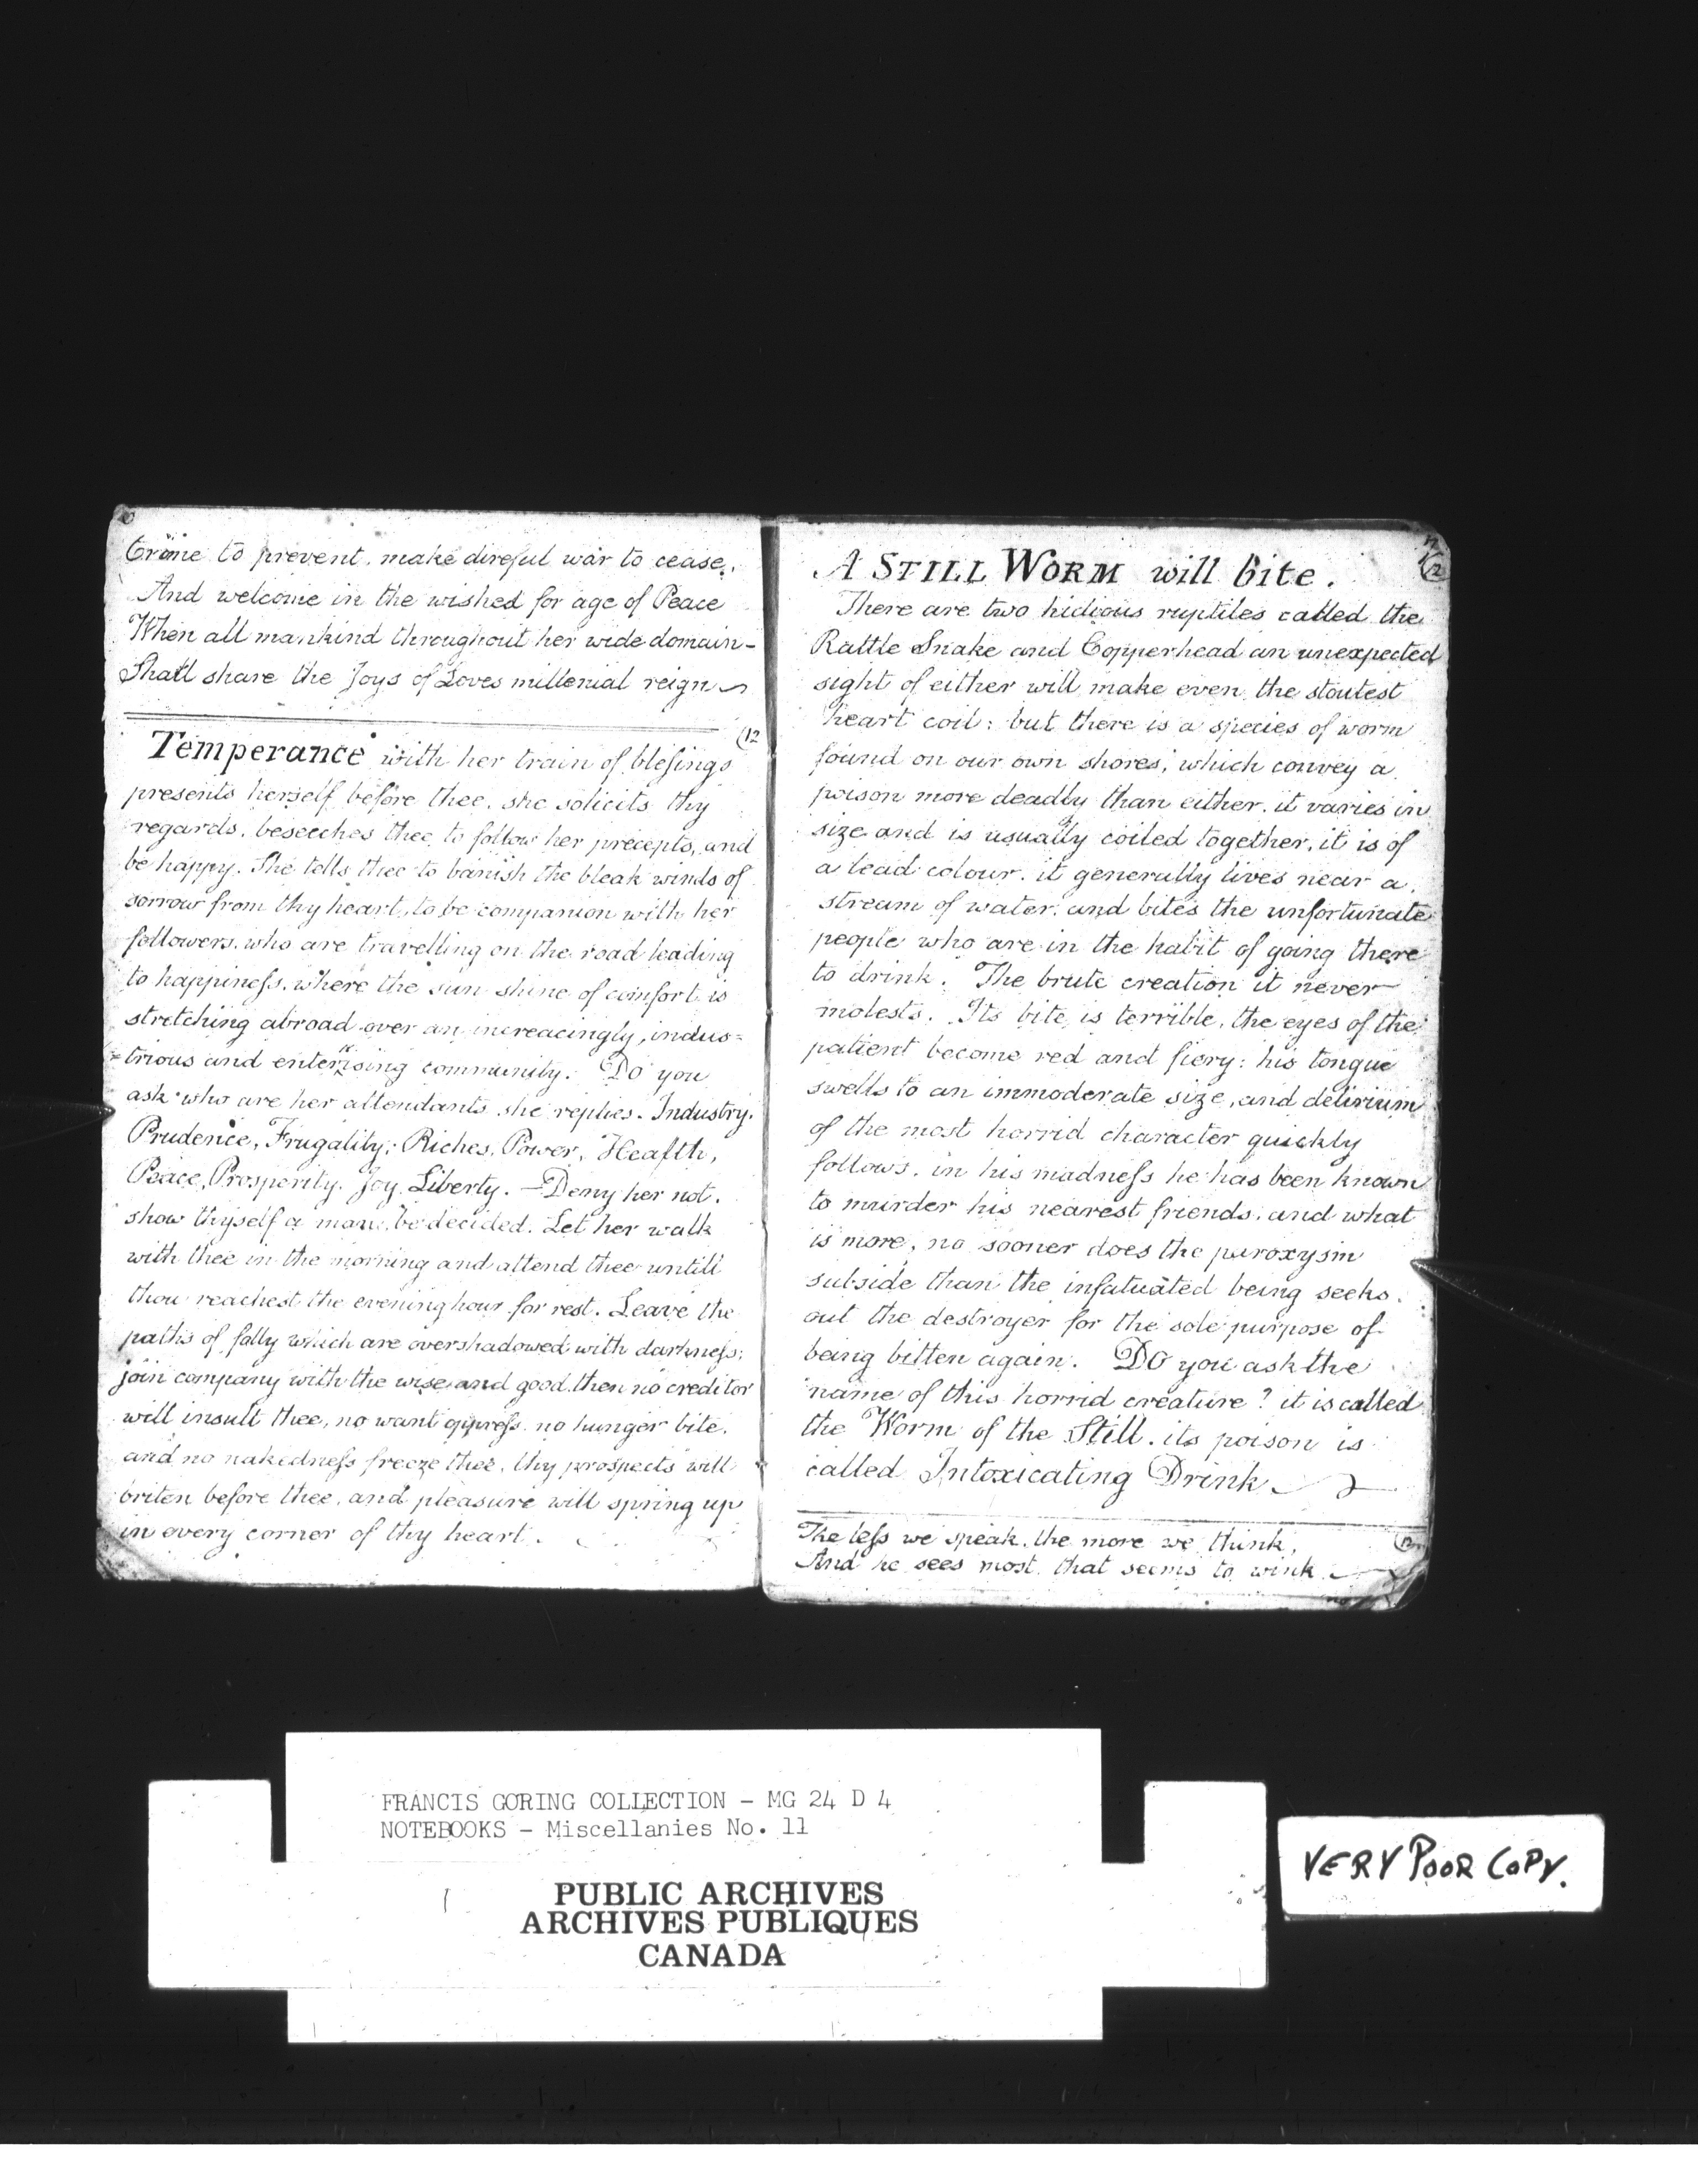 Crime to prevent, make direful war to cease,
And welcome in the wished for age of Peace
When all mankind throughout her wide domain
Shall share the Joys of Loves millenial reign
(12
Temperance with her train of blesings
presents herself before thee, she solicits thy
regards, beseeches thee to follow her precepts, and
be happy. She tells thee to banish the bleak winds of
sorrow from thy heart, to be companion with her
followers, who are travelling on the road leading
to happiness, where the sun shine of comfort is
stretching abroad over an increacingly, indus=
=trious and enterprising community. Do you
ask who are her attendants she replies. Industry.
Prudence, Frugality, Riches, Power, Health,
Peace, Prosperity. Joy Liberty. — Deny her not.
show thyself a man, be decided. Let her walk
with thee in the morning and attend thee untill
thou reachest the evening hour for rest. Leave the
paths of folly which are overshadowed with darkness;
join company with the wise and good, then no creditor
will insult thee, no want oppress, no hunger bite,
and no nakedness freeze thee, thy prospects will
briten before thee, and pleasure will spring up
in every corner of thy heart.
(12
A STILL WORM will bite.
There are two hidious ruptiles called the
Rattle Snake and Copperhead an unexpected
sight of either will make even the stoutest
heart coil: but there is a species of worm
found on our own shores, which convey a
poison more deadly than either, it varies in
size and is usually coiled together, it is of
a lead colour. it generally lives near a
stream of water, and bites the unfortunate
people who are in the habit of going there
to drink. The brute creation it never
molests. Its bite is terrible, the eyes of the
patient become red and fiery: his tongue
swells to an immoderate size, and delirium
of the most horrid character quickly
follows, in his madness he has been known
to murder his nearest friends, and what
is more, no sooner does the paroxysm
subside than the infatuated being seeks
out the destroyer for the sole purpose of
being bitten again. Do you ask the
name of this horrid creature? it is called
the Worm of the Still. its poison is
called Intoxicating Drink
The less we speak, the more we think,
And he sees most, that seems to wink
FRANCIS GORING COLLECTION - MG 24 D 4
NOTEBOOKS - Miscellanies No. 11
PUBLIC ARCHIVES
ARCHIVES PUBLIQUES
CANADA
VERY POOR COPY.